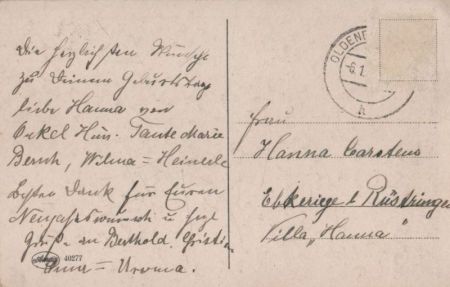 Die herzlichsten Wünsche
zu Deinem Geburtstag
liebe Hanna von
Onkel Hin. Tante Marie
Bernh, Wilma = Heinerle
Besten Dank für Euren
Neujahrswunsch u herzl
Grüße an Berthold, Christi
Oma = Uroma.
40277
OLDENB
6.1.
Frau
Hanna Carstens
Ebkeriege b Rüstringen
Villa „Hanna"